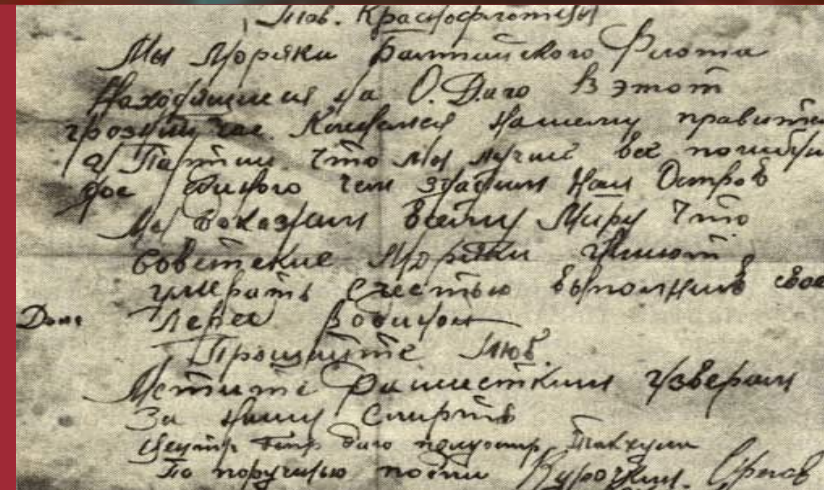 Тов. Краснофлотцы
Мы Моряки Балтийского Флота
Находящиеся на О. Даго В этот
грозный час Клянемся Нашему правител
и Партии что мы лучше все погибнем
до единого чем здадим Наш Остров
Мы докажем всему Миру что
Советские Моряки умеют
умерать с честью выполнив свое
Долг Перед Родиной
Прощайте Тов.
Мстите Фашистким Извергам
За Нашу Смерть
полуостр Тахкуна
По поручению подписал Курочкин. Орлов